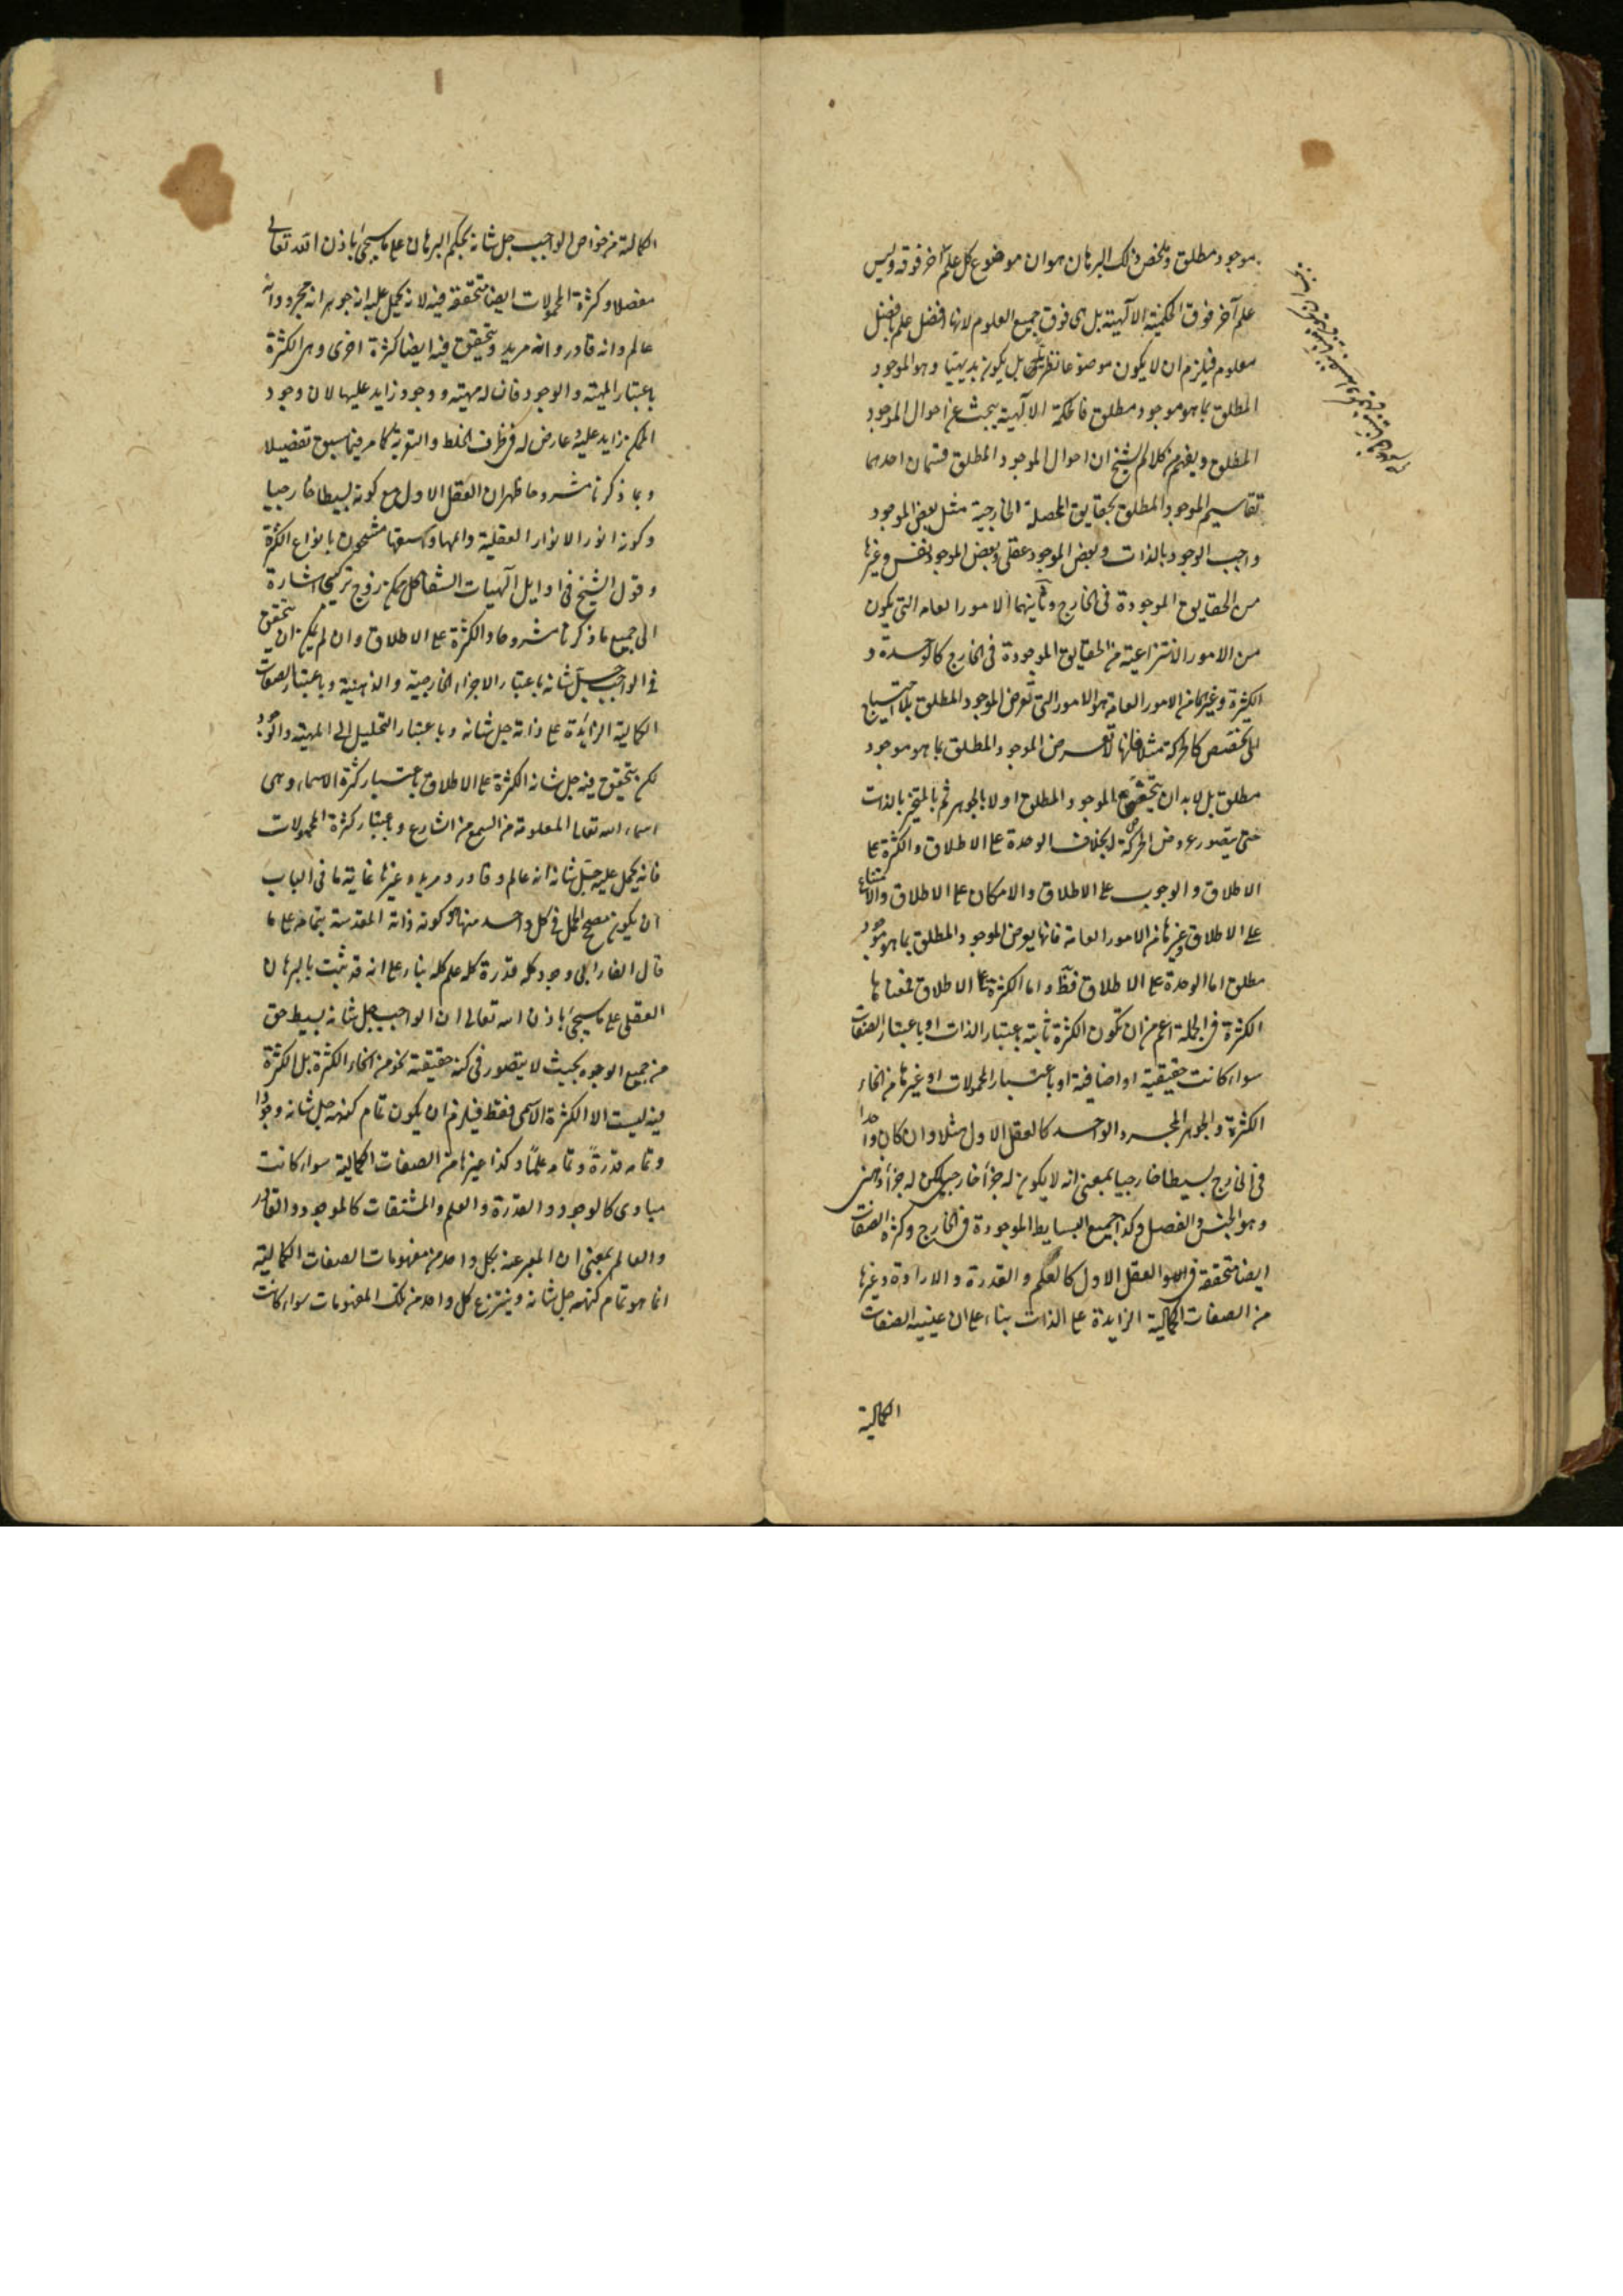 موجود مطلق وملخص ذلك البرهان هو ان موضوع كل علم آخر فوقه وليس
علم آخر فوق الحكمة الالهية بل هى فوق جميع العلوم لانها افضل علم بافضل
معلوم فيلزم ان لا يكون موضوعها نظريا بل يكون بديهيا وهو الموجود
المطلق بما هو موجود مطلق فالحكمة الالهية يبحث عن احوال الموجود
المطلق ويفهم من كلام الشيخ ان احوال الموجود المطلق قسمان احدهما
تقاسيم الموجود المطلق بحقايق المحصلة الخارجية مثل بعض الموجود
واجب الوجود بالذات وبعض الموجود عقلى وبعض الموجود نفس وغيرها
من الحقايق الموجودة فى الخارج وثانيهما الامور العامه التى يكون
من الامور الانتزاعية من الحقايق الموجودة فى الخارج كالوحدة و
الكثرة وغيرها من الامور العامة هو الامور التى تعرض الموجود المطلق بلا احتياج
الى تخصص كالحركة مثلا فانها لا تعرض الموجود المطلق بما هو موجود
مطلق بل لا بد ان يتخصص الموجود المطلق اولا بالجوهر ثم بالمتحيز بالذات
حتى يتصور عروض الحركة له بخلاف الوحدة على الاطلاق والكثرة على
الاطلاق والوجوب على الاطلاق والامكان على الاطلاق والامتناع
على الاطلاق وغيرها من الامور العامة فانها يعرض الموجود المطلق بما هو موجود
مطلق اما الوحدة على الاطلاق فظ واما الكثرة على الاطلاق فمعناها
الكثرة فى الجملة اعم من ان تكون الكثرة ثابتة باعتبار الذات او باعتبار الصفات
سواء كانت حقيقية او اضافية او باعتبار المحمولات او غيرها من انحاء
الكثرة والجوهر المجرد الواحد كالعقل الاول مثلا وان كان واحدا
فى الخارج بسيطا خارجيا بمعنى انه لا يكون له جزأ خارجى لكن له جزأ ذهنى
وهو الجنس والفصل وكذا جميع البسايط الموجودة فى الخارج وكثرة الصفات
ايضا متحققة فى العقل الاول كالعلم والقدرة والارادة وغيرها
من الصفات الكمالية الزايدة على الذات بناء على ان عينية الصفات
الكمالية
الكمالية من خواص الواجب جل شانه بحكم البرهان على ما سيجئ باذن الله تعالى
مفصلا وكثرة المحمولات ايضا متحققة فيه لانه يحمل عليه انه جوهر انه مجرد وانه
عالم وانه قادر وانه مريد ويتحقق فيه ايضا كثرة اخرى وهى الكثرة
باعتبار المهية والوجود فان له مهية ووجود زايد عليها لان وجود
الممكن زايد عليه وعارض له فى ظرف الخلط والتعرية كما مر فيما سبق تفصيلا
وبما ذكرنا مشروحا ظهر ان العقل الاول مع كونه بسيطا خارجيا
وكونه انور الانوار العقلية وابهاها واسبقها مشحون بانواع الكثرة
وقول الشيخ فى اوايل الهيات الشفا كل ممكن زوج تركيبى اشارة
الى جميع ما ذكرنا مشروحا والكثرة على الاطلاق وان لم يكن ان يتحقق
فى الواجب جل شانه باعتبار الاجزاء الخارجية والذهنية وباعتبار الصفات
الكمالية الزائدة على ذاته جل شانه وباعتبار التحليل الى المهية والوجود
لكن يتحقق فيه جل شانه الكثرة على الاطلاق باعتبار كثرة الاسماء وهى
اسماء الله تعالى المعلومة من السمع من الشارع وباعتبار كثرة المحمولات
فانه يحمل عليه جل شانه انه عالم وقادر ومريد وغيرها غاية ما فى الباب
ان يكون مصحح الحمل فى كل واحد منها هو كونه ذاته المقدسة بتمامه على ما
قال الفارابى وجود كله قدرة كله علم كله بناء على انه قد ثبت بالبرهان
العقلى على ما سيجئ باذن الله تعالى ان الواجب جل شانه بسيط حق
من جميع الوجوه بحيث لا يتصور فى كنه حقيقته نحو من انحاء الكثرة بل الكثرة
فيه ليست الا الكثرة الاسمى فقط فيلزم ان يكون تمام كنهه جل شانه وجودا
وتمامه قدرةً وتمامه علمًا وكذا غيرها من الصفات الكمالية سواء كانت
مبادى كالوجود والقدرة والعلم والمشتقات كالموجود والقادر
والعالم بمعنى ان المعبر عنه بكل واحد من مفهومات الصفات الكمالية
انما هو تمام كنهه جل شانه وينتزع كل واحد من تلك المفهومات سواء كانت